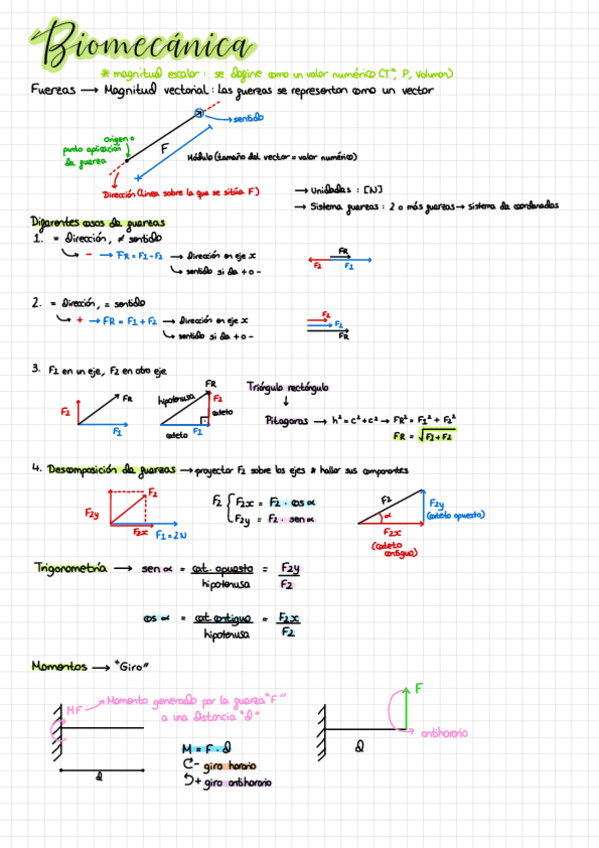 Biomecánica
* magnitud escalar: se define como un valor numérico (Tª, P, Volumen)
Fuerzas → Magnitud vectorial: las fuerzas se representan como un vector
sentido
origen o
punto aplicación
de fuerza
F
Módulo (tamaño del vector = valor numérico)
Dirección (línea sobre la que se sitúa F)
→ Unidades: [N]
→ Sistema fuerzas: 2 o más fuerzas → sistema de coordenadas
Diferentes casos de fuerzas
1. = dirección, ≠ sentido
- → FR = F1 - F2 → dirección en eje x
sentido si da + o -
FR
F2 F1
2. = dirección, = sentido
+ → FR = F1 + F2 → dirección en eje x
sentido si da + o -
F2
F1
FR
3. F2 en un eje, F2 en otro eje
F2 FR F1
hipotenusa FR F2 cateto
cateto F1
Triángulo rectángulo
↓
Pitagoras → h² = c² + c² → FR² = F1² + F2²
FR = √F2 + F2
4. Descomposición de fuerzas → proyectar F2 sobre los ejes * hallar sus componentes
F2
F2y
F2x F1 = 2N
F2 { F2x = F2 · cos α
F2y = F2 · sen α
F2 F2y
(cateto opuesto)
α
F2x
(cateto
contiguo)
Trigonometría → sen α = cat. opuesto / hipotenusa = F2y / F2
cos α = cat. contiguo / hipotenusa = F2x / F2
Momentos → "Giro"
MF → Momento generado por la fuerza "F"
a una distancia "d"
d
M = F · d
- giro horario
+ giro antihorario
F
antihorario
d